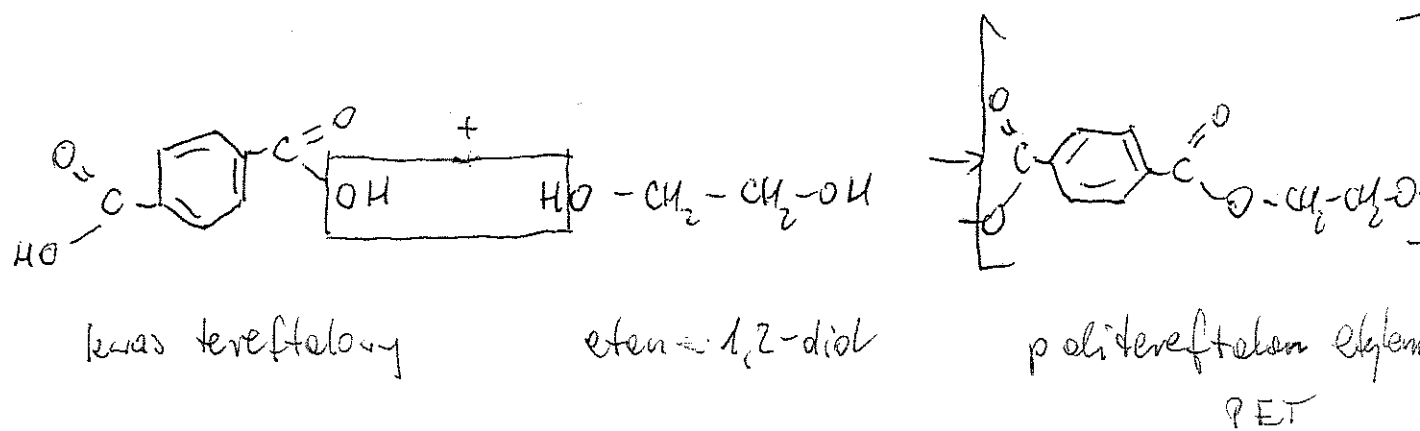 O O + O O
C C OH HO-CH2-CH2-OH → C C
HO O O-CH2-CH2-O
kwas tereftalowy etan-1,2-diol politereftalan etylen
PET